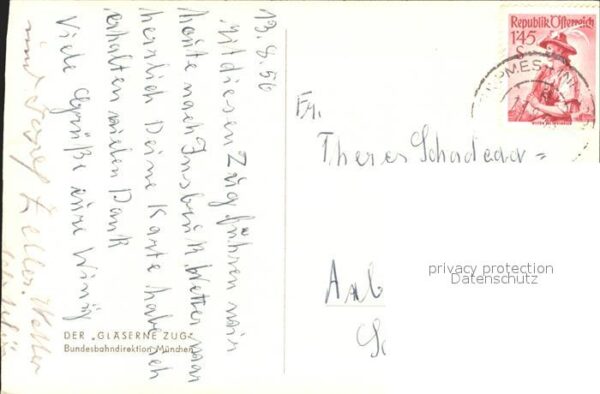 13.8.56
Mit diesen Zug führen wir
heute nach Insbruk Wetter war
herrlich Deine Karte habe ich
erhalten vielen Dank
Viele Grüße eure
und Josef Zeller.
DER „GLÄSERNE ZUG“
Bundesbahndirektion München
Republik Österreich
1'45
S
Fr.
Theres
privacy protection
Datenschutz